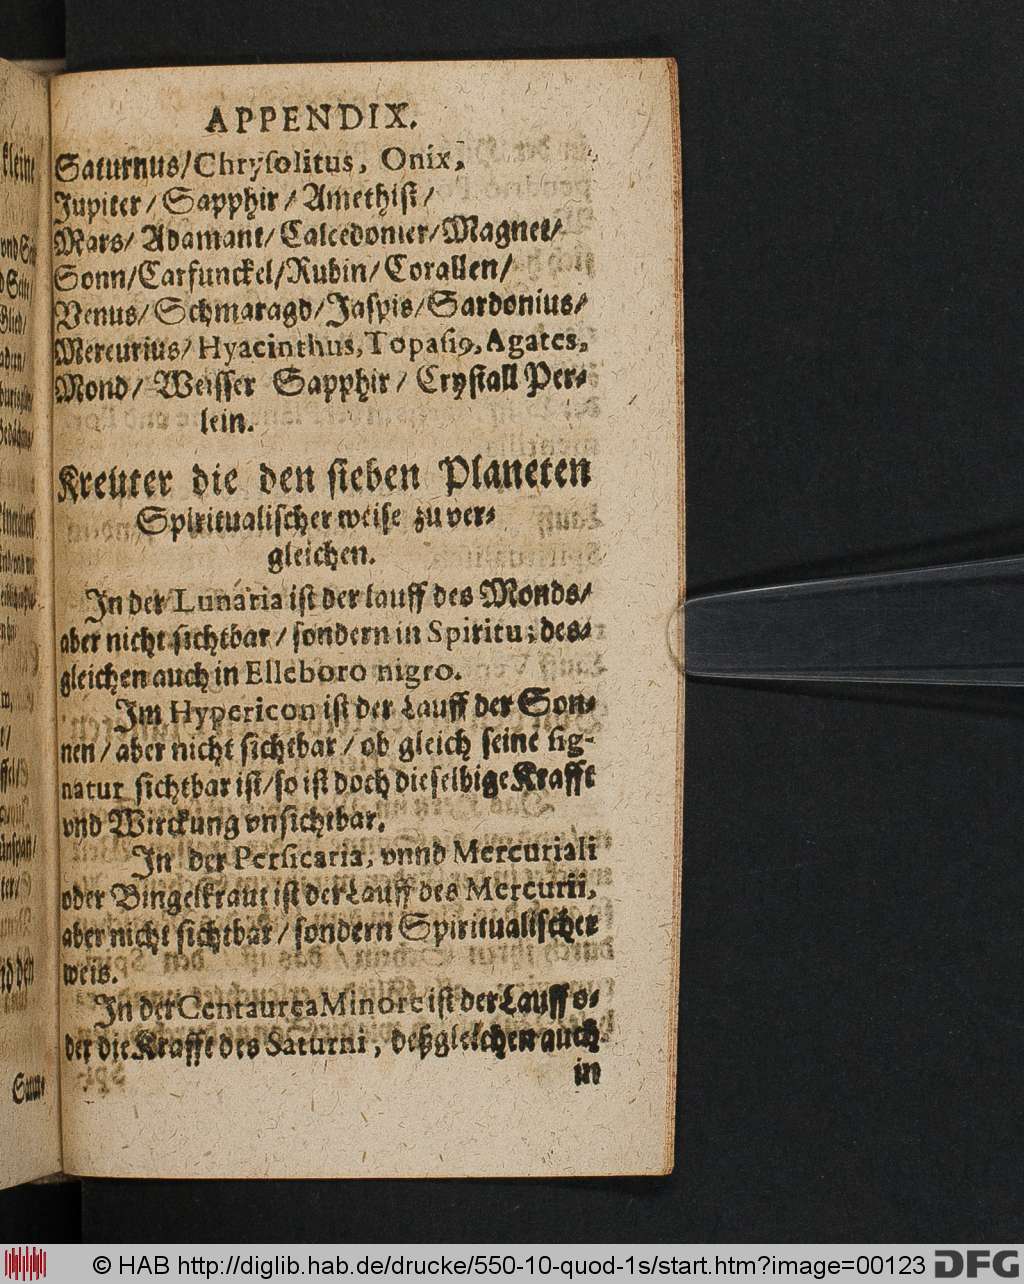 APPENDIX.
Saturnus/Chrysolitus, Onix,
Jupiter/ Sapphir/ Amethist/
Mars/ Adamant/ Calcedonier/Magnet/
Sonn/Carfunckel/Rubin/Corallen/
Venus/ Schmaragd/Jaspis/Sardonius/
Mercurius/ Hyacinthus, Topasiꝰ, Agates,
Mond/ Weisser Sapphir/ Crystall Per-
lein.
Kreuter die den sieben Planeten
Spiritualischer weise zu ver-
gleichen.
In der Lunaria ist der lauff des Monds/
aber nicht sichtbar/ sondern in Spiritu; des-
gleichen auch in Elleboro nigro.
Im Hypericon ist der Lauff der Son-
nen/ aber nicht sichtbar/ ob gleich seine sig-
natur sichtbar ist/so ist doch dieselbige Krafft
vnd Wirckung vnsichtbar.
In der Persicaria, vnnd Mercuriali
oder Bingelkraut ist der Lauff des Mercurii,
aber nicht sichtbar/ sondern Spiritualischer
weis.
In der Centaurea Minore ist der Lauff o-
der die Krafft des Saturni, deßgleichen auch
in
© HAB http://diglib.hab.de/drucke/550-10-quod-1s/start.htm?image=00123
DFG